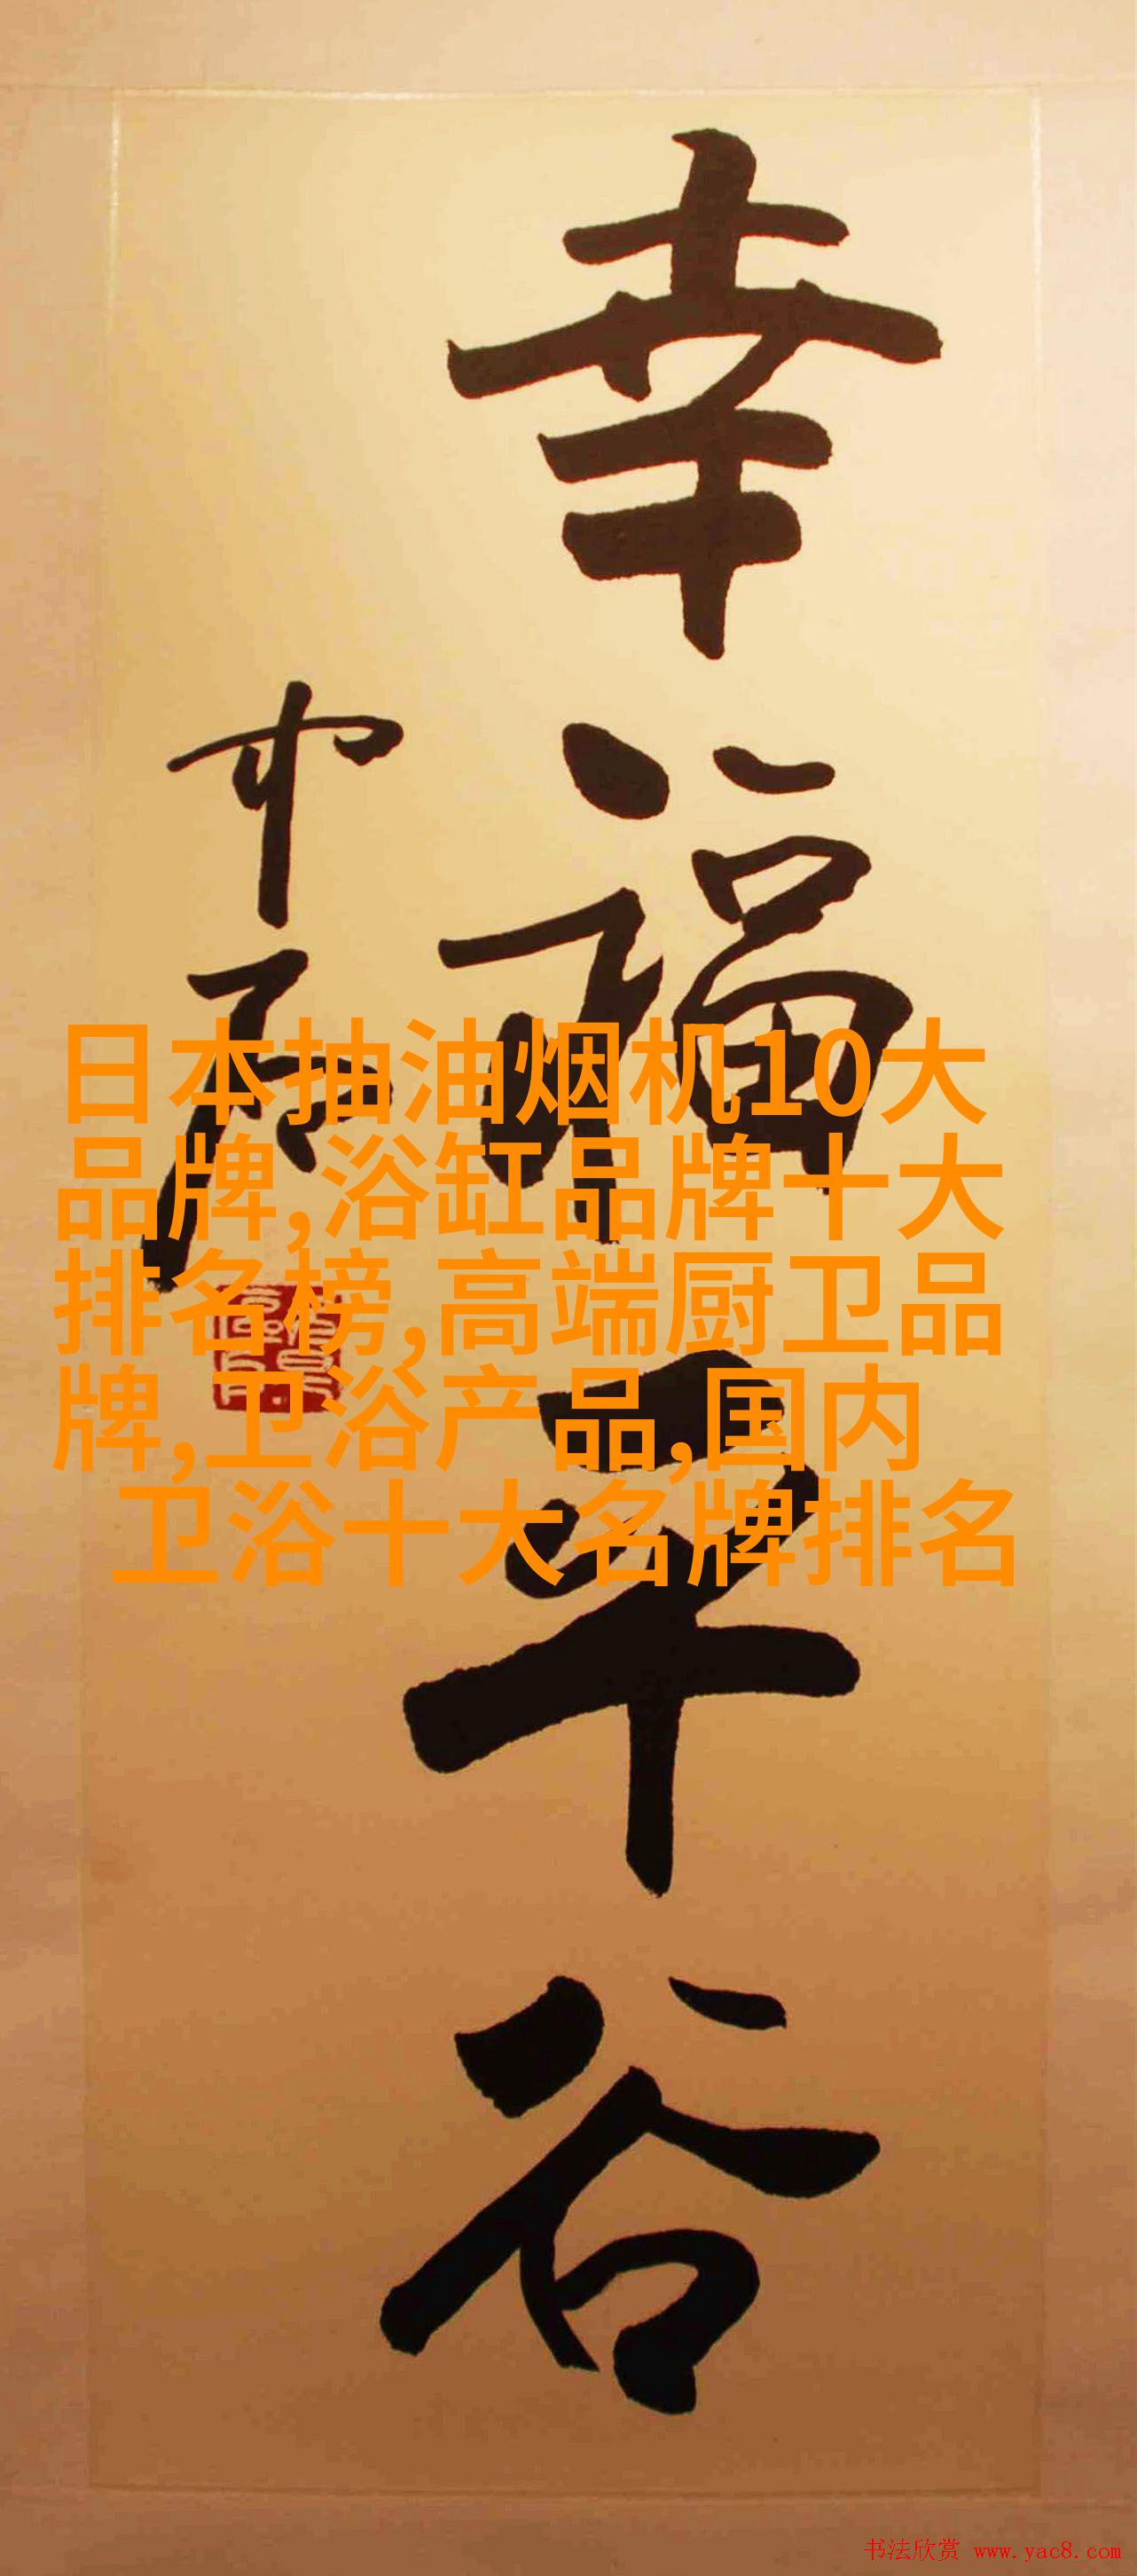 幸福平谷
日本抽油烟机10大
品牌,浴缸品牌十大
排名榜,高端厨卫品
牌,卫浴产品,国内
卫浴十大名牌排名
书法欣赏 www.yac8.com